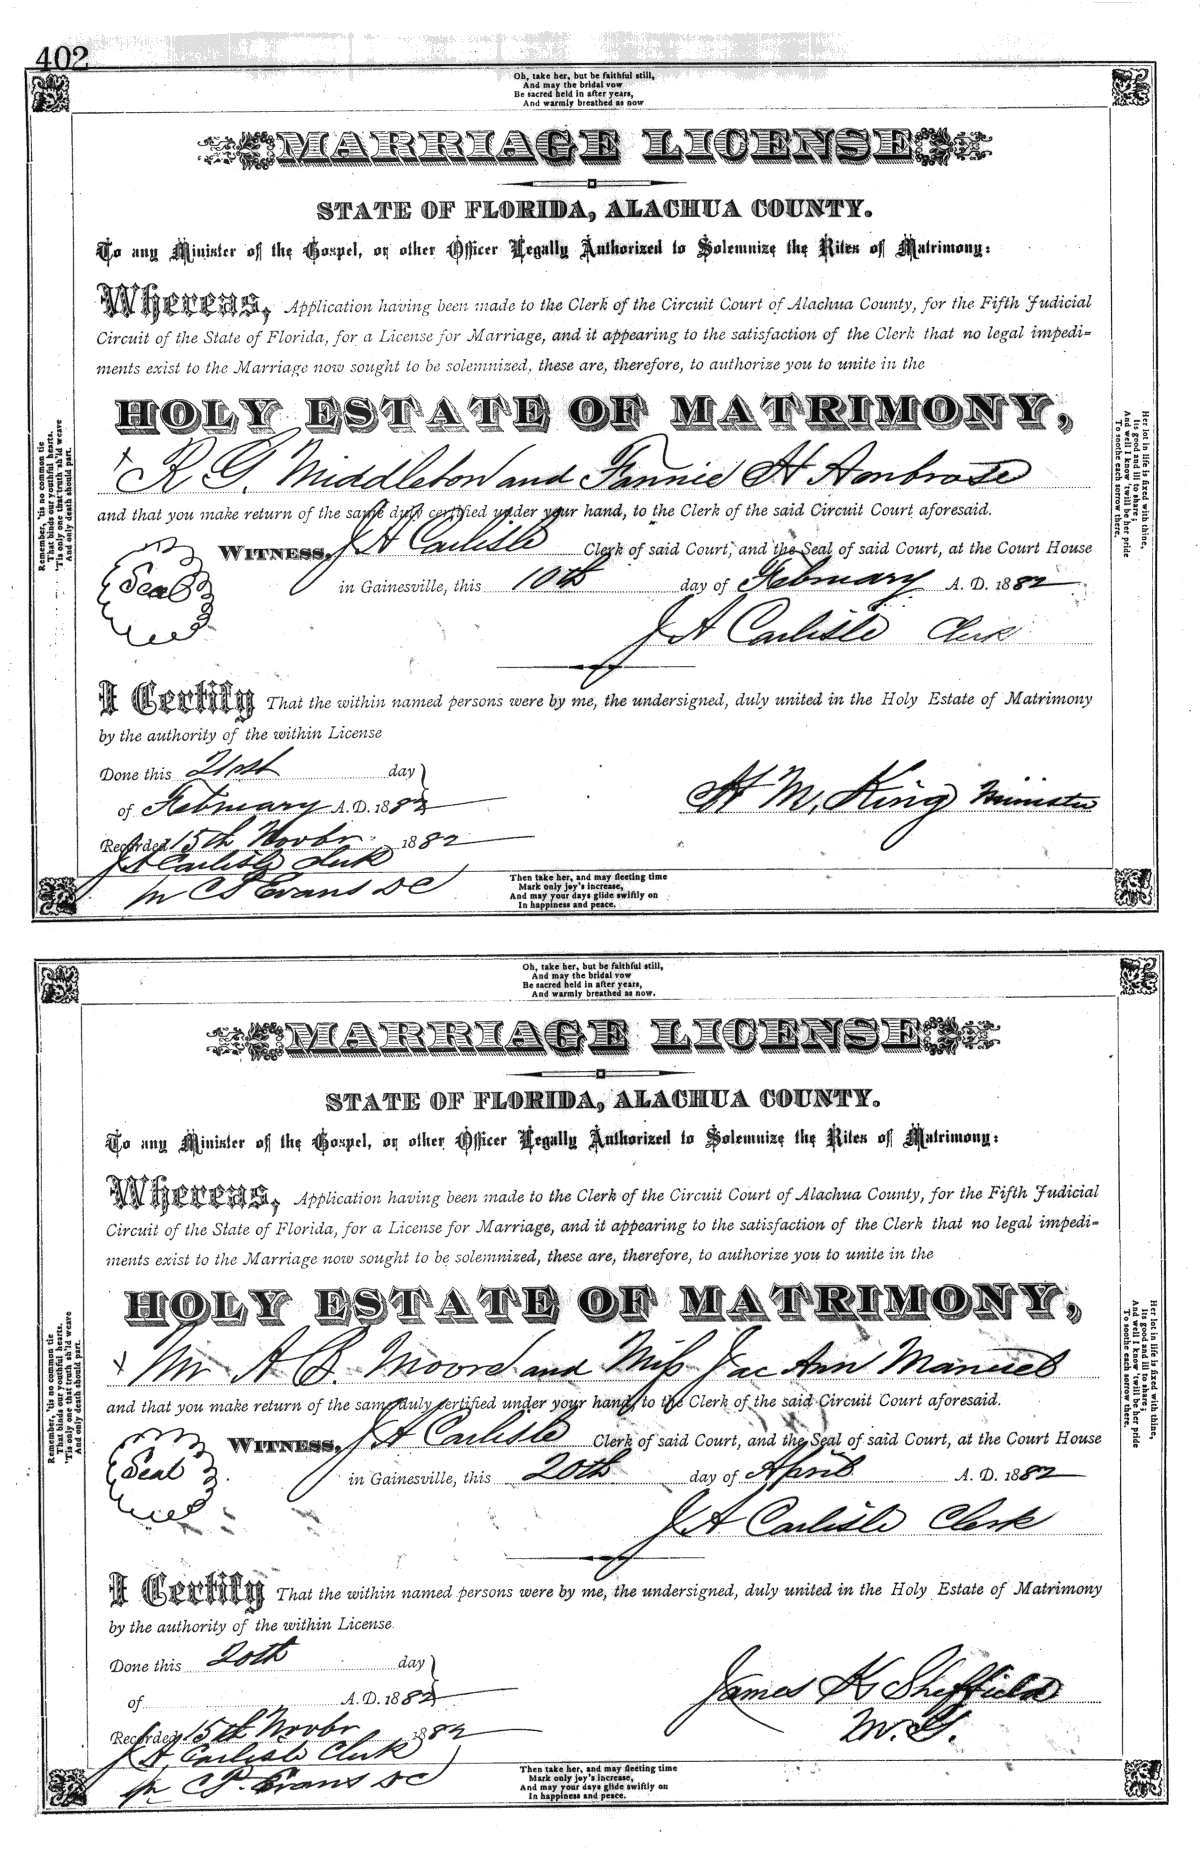 402
Oh, take her, but be faithful still,
And may the bridal vow
Be sacred held in after years,
And warmly breathed as now
MARRIAGE LICENSE
STATE OF FLORIDA, ALACHUA COUNTY.
To any Minister of the Gospel, or other Officer Legally Authorized to Solemnize the Rites of Matrimony:
Whereas, Application having been made to the Clerk of the Circuit Court of Alachua County, for the Fifth Judicial
Circuit of the State of Florida, for a License for Marriage, and it appearing to the satisfaction of the Clerk that no legal impedi-
ments exist to the Marriage now sought to be solemnized, these are, therefore, to authorize you to unite in the
HOLY ESTATE OF MATRIMONY,
x R G. Middleton and Fannie H Ambrose
and that you make return of the same duly certified under your hand, to the Clerk of the said Circuit Court aforesaid.
WITNESS, J A Carlisle Clerk of said Court, and the Seal of said Court, at the Court House
Seal
in Gainesville, this 10th day of February A. D. 1882
J A Carlisle Clerk
I Certify That the within named persons were by me, the undersigned, duly united in the Holy Estate of Matrimony
by the authority of the within License
Done this 21st day
of February A.D. 1882
H M. King Minister
Recorded 15th Novbr 1882
J A Carlisle Clerk
pr C P Evans DC
Remember, 'tis no common tie
That binds our youthful hearts.
'Tis only one that truth sh'ld weave
And only death should part.
Her lot in life is fixed with thine,
Its good and ill to share;
And well I know 'twill be her pride
To soothe each sorrow there.
Then take her, and may fleeting time
Mark only joy's increase,
And may your days glide swiftly on
In happiness and peace.
Oh, take her, but be faithful still,
And may the bridal vow
Be sacred held in after years,
And warmly breathed as now.
MARRIAGE LICENSE
STATE OF FLORIDA, ALACHUA COUNTY.
To any Minister of the Gospel, or other Officer Legally Authorized to Solemnize the Rites of Matrimony:
Whereas, Application having been made to the Clerk of the Circuit Court of Alachua County, for the Fifth Judicial
Circuit of the State of Florida, for a License for Marriage, and it appearing to the satisfaction of the Clerk that no legal impedi-
ments exist to the Marriage now sought to be solemnized, these are, therefore, to authorize you to unite in the
HOLY ESTATE OF MATRIMONY,
x Mr A B. Moore and Miss Jac Ann Manuel
and that you make return of the same duly certified under your hand, to the Clerk of the said Circuit Court aforesaid.
WITNESS, J A Carlisle Clerk of said Court, and the Seal of said Court, at the Court House
Seal
in Gainesville, this 20th day of April A. D. 1882
J A Carlisle Clerk
I Certify That the within named persons were by me, the undersigned, duly united in the Holy Estate of Matrimony
by the authority of the within License.
Done this 20th day
of A.D. 1882
James K Sheffield
M. G.
Recorded 15th Novbr 1882
J A Carlisle Clerk
pr C P. Evans DC
Remember, 'tis no common tie
That binds our youthful hearts.
'Tis only one that truth sh'ld weave
And only death should part.
Her lot in life is fixed with thine,
Its good and ill to share;
And well I know 'twill be her pride
To soothe each sorrow there.
Then take her, and may fleeting time
Mark only joy's increase,
And may your days glide swiftly on
In happiness and peace.